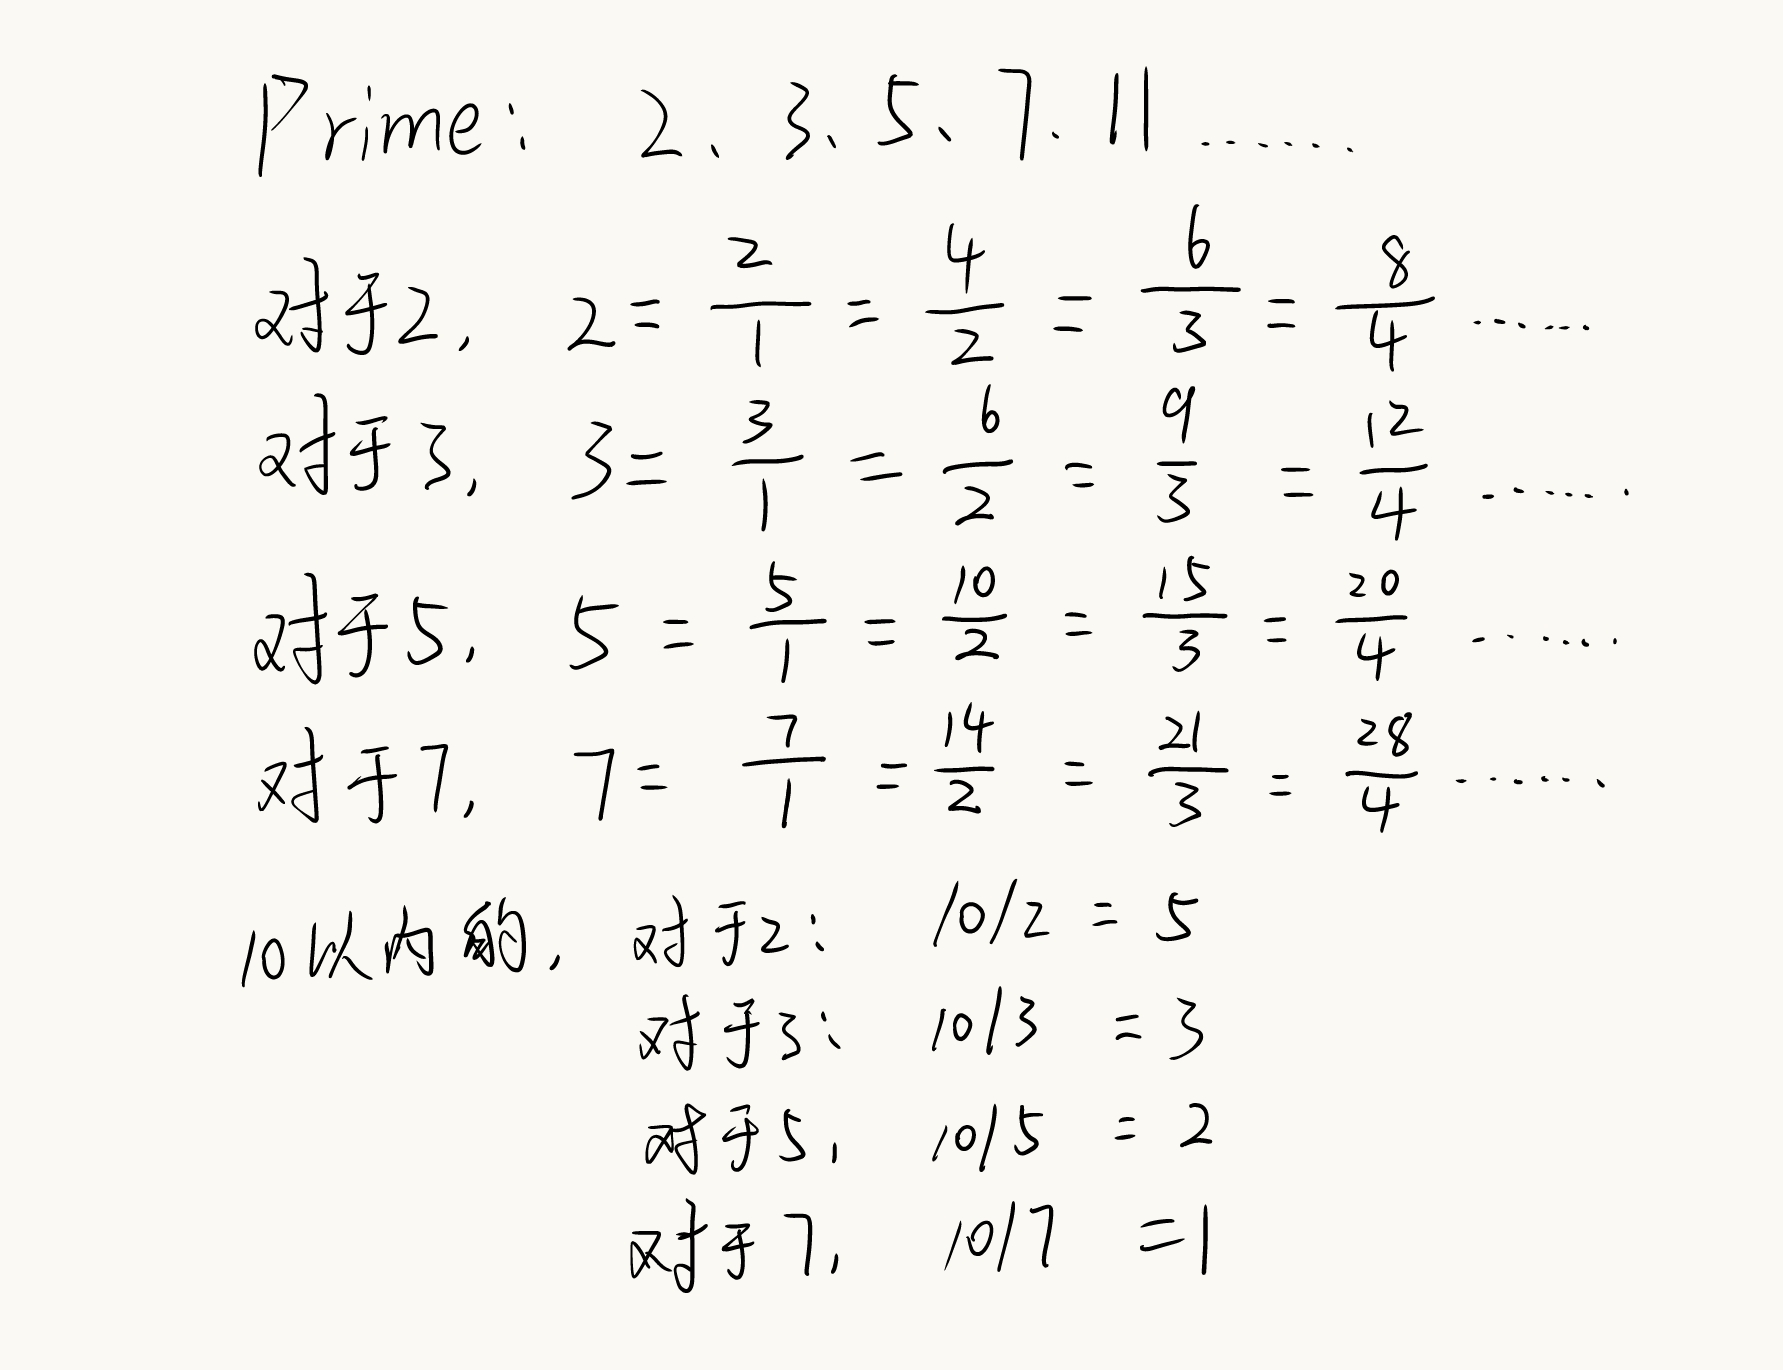 Prime: 2、3、5、7、11 ......
对于2, 2 = 2/1 = 4/2 = 6/3 = 8/4 ......
对于3, 3 = 3/1 = 6/2 = 9/3 = 12/4 ......
对于5, 5 = 5/1 = 10/2 = 15/3 = 20/4 ......
对于7, 7 = 7/1 = 14/2 = 21/3 = 28/4 ......
10以内的, 对于2: 10/2 = 5
对于3: 10/3 = 3
对于5, 10/5 = 2
对于7, 10/7 = 1